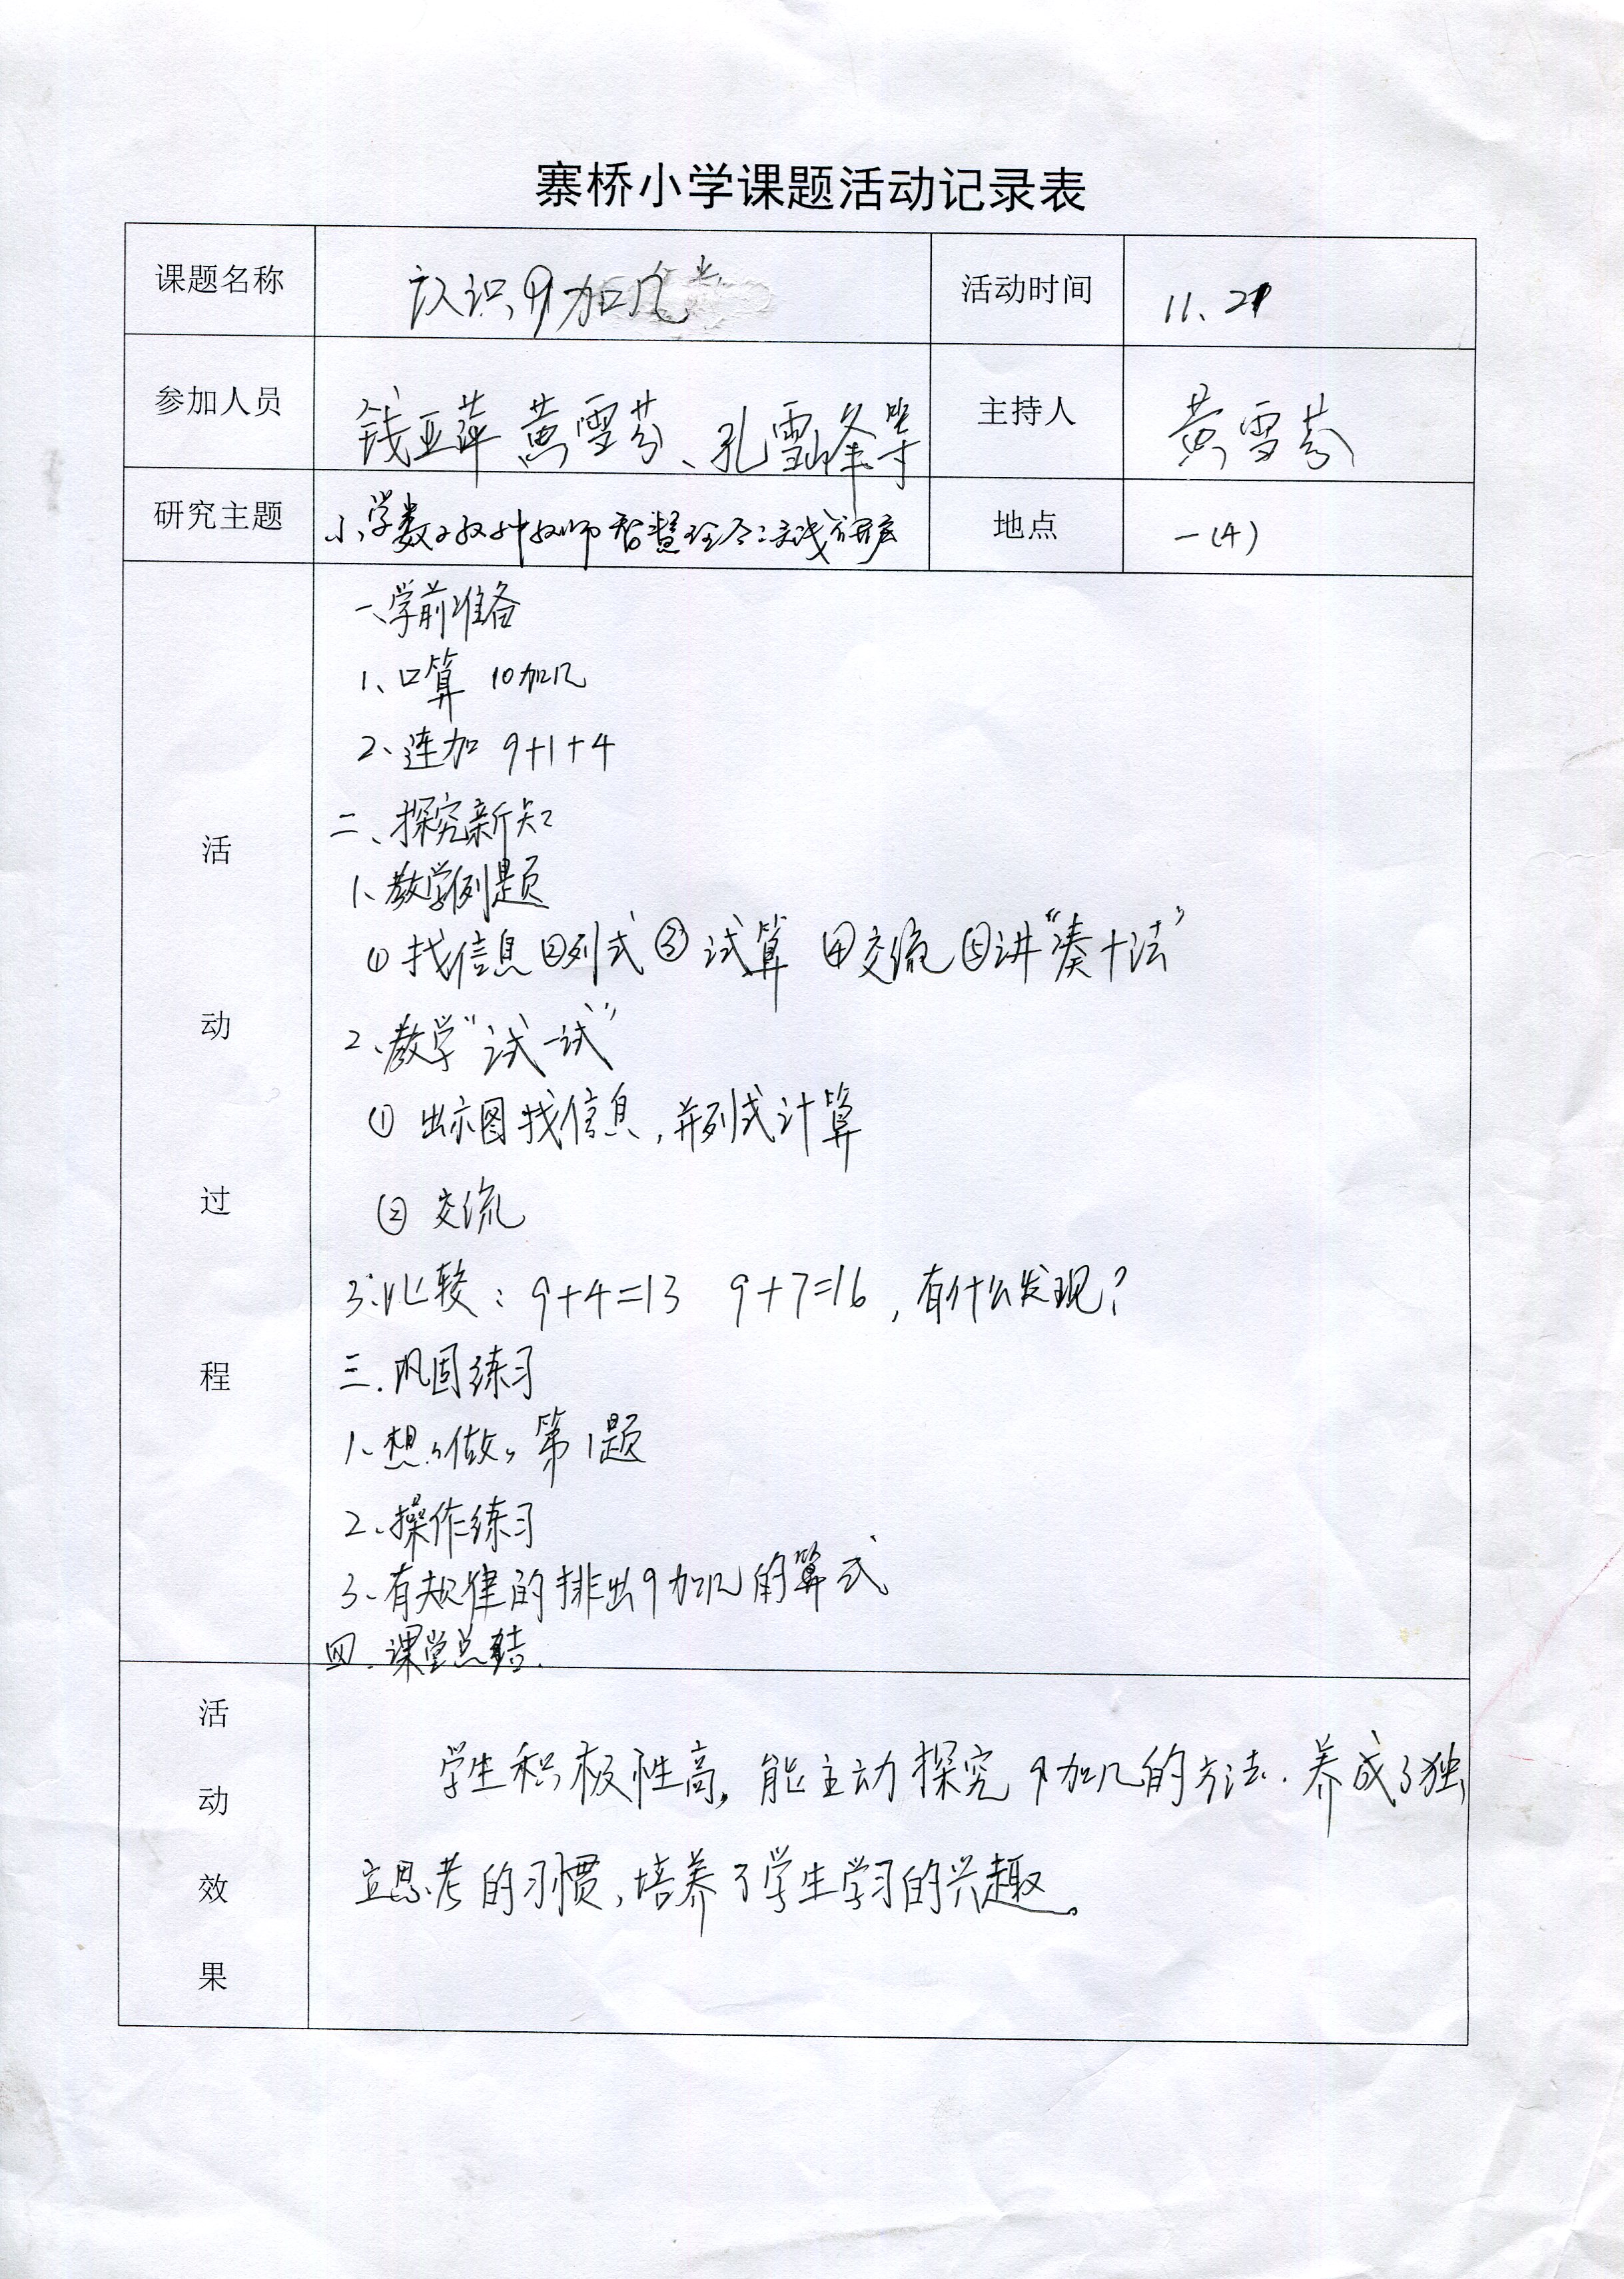 寨桥小学课题活动记录表
课题名称 认识9加几 活动时间 11、21
参加人员 钱亚萍 黄雪芬、孔雪峰等 主持人 黄雪芬
研究主题 小学数学教师智慧 地点 一(4)
活动过程
一、学前准备
1、口算 10加几
2、连加 9+1+4
二、探究新知
1、教学例题
①找信息②列式③试算 ④交流⑤讲“凑十法”
2、教学“试一试”
① 出示图找信息,并列式计算
② 交流
3、比较:9+4=13 9+7=16,有什么发现?
三.巩固练习
1、想想做做第1题
2、操作练习
3、有规律的排出9加几的算式
四.课堂总结.
活动效果
学生积极性高,能主动探究9加几的方法.养成了独
立思考的习惯,培养了学生学习的兴趣。